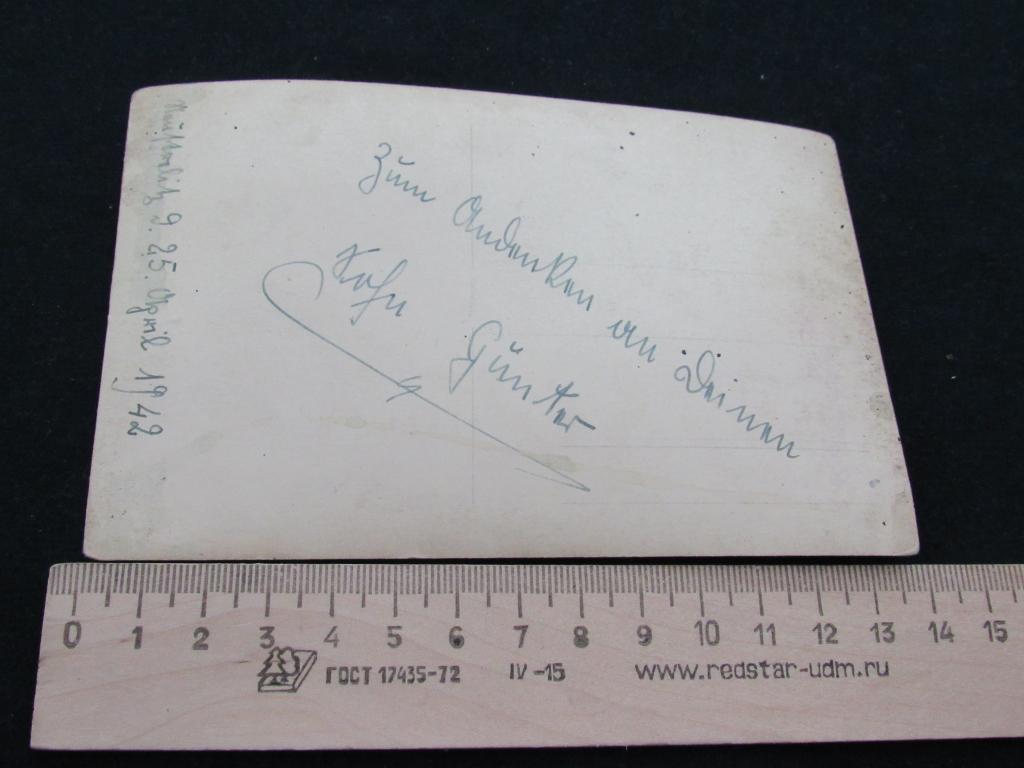 Zum Andenken an Deinen
Sohn Günter
25. April 1942
0 1 2 3 4 5 6 7 8 9 10 11 12 13 14 15
ГОСТ 17435-72 IV-15 www.redstar-udm.ru